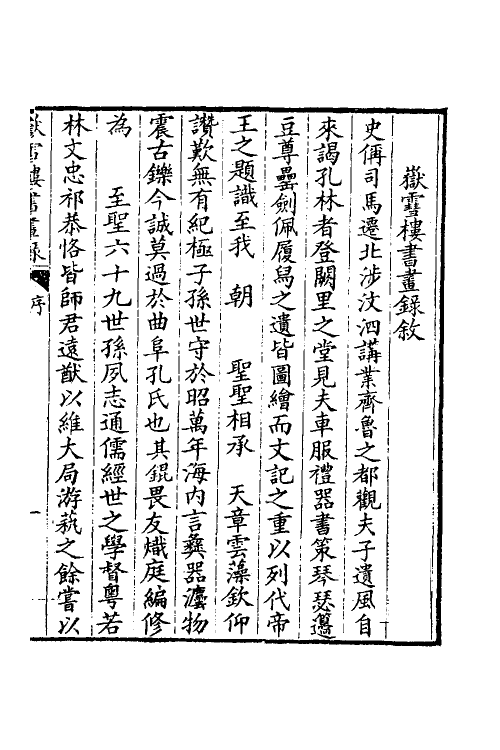 嶽雪樓書畫錄敘
史偁司馬遷北涉汶泗講業齊魯之都觀夫子遺風自
來謁孔林者登闕里之堂見夫車服禮器書策琴瑟籩
豆尊罍劍佩履舄之遺皆圖繪而文記之重以列代帝
王之題識至我　朝　聖聖相承　天章雲藻欽仰
讚歎無有紀極子孫世守於昭萬年海內言彝器灋物
震古鑠今誠莫過於曲阜孔氏也其錕畏友熾庭編修
為　至聖六十九世孫夙志通儒經世之學督粵若
林文忠祁恭恪皆師君遠猷以維大局游蓺之餘嘗以
嶽雪樓書畫錄　序　一